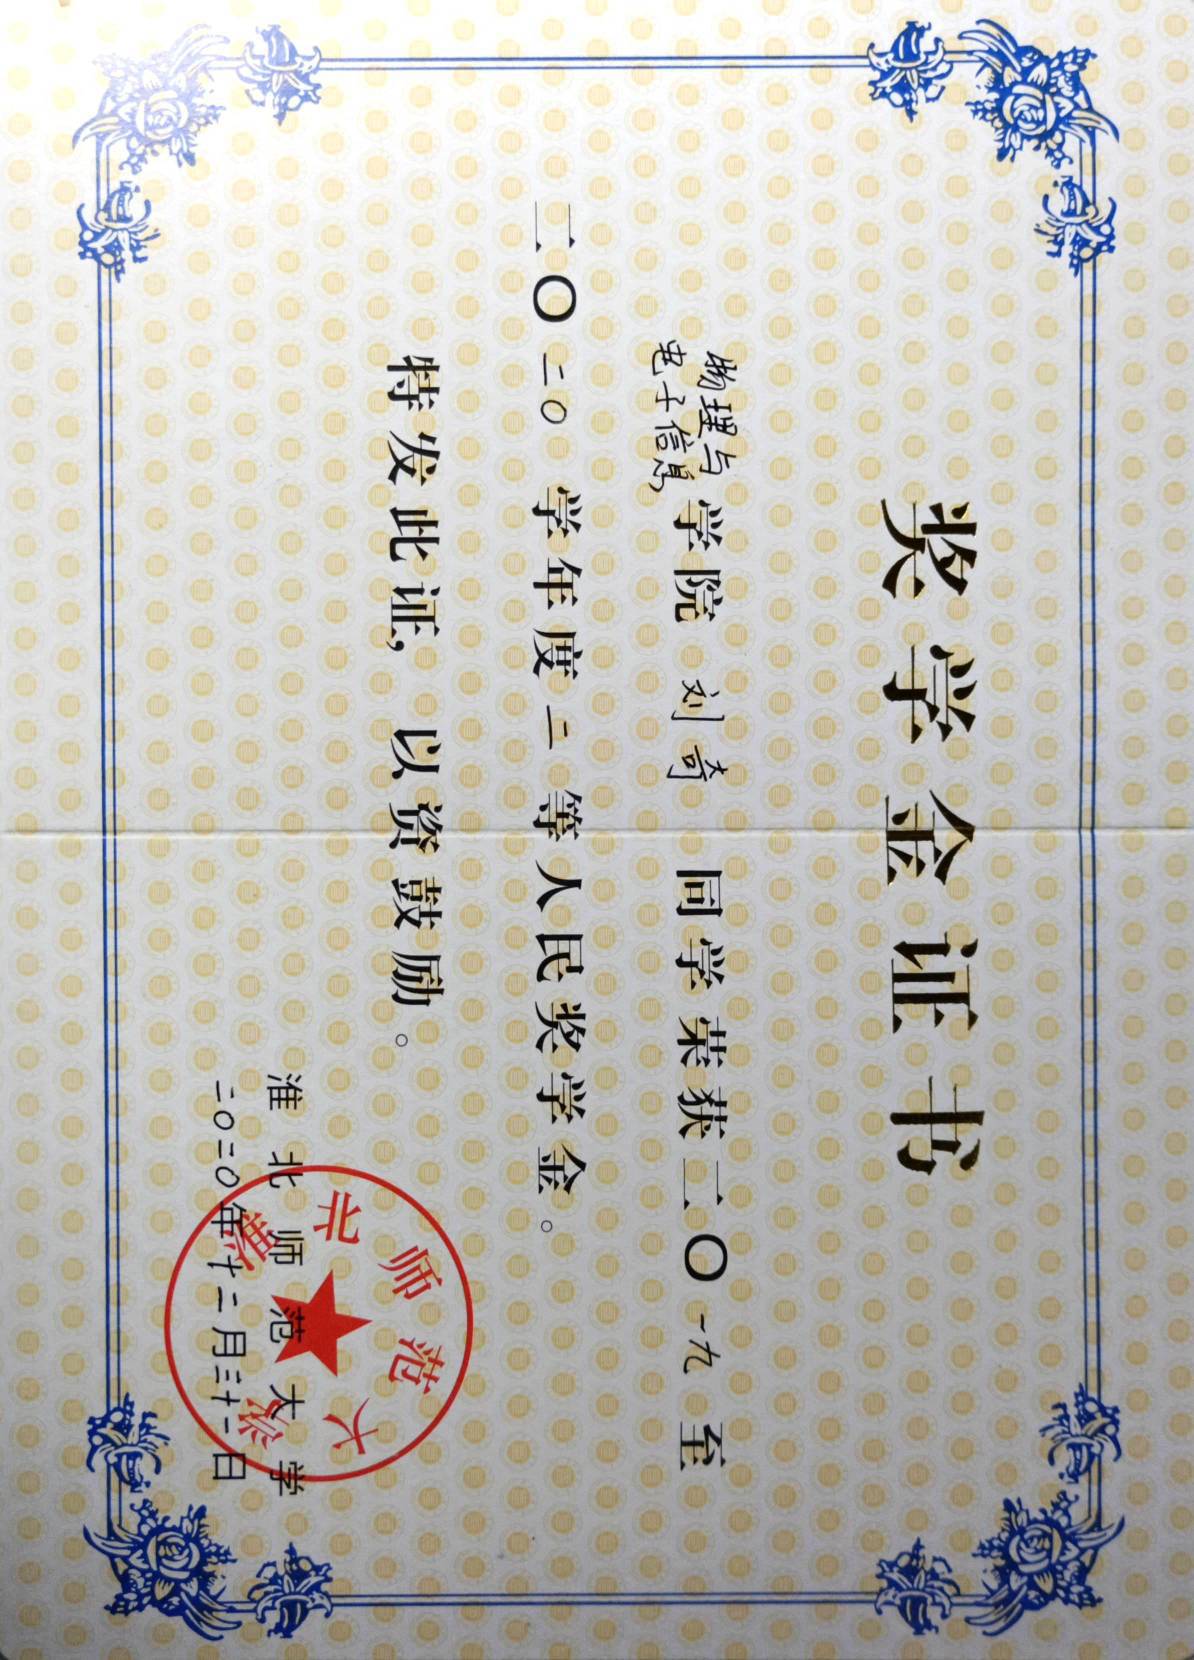 奖学金证书
物理与
电子信息学院 刘奇 同学荣获二〇一九至
二〇二〇学年度二等人民奖学金。
特发此证，以资鼓励。
淮北师范大学
淮北师范大学
二〇二〇年十二月三十一日